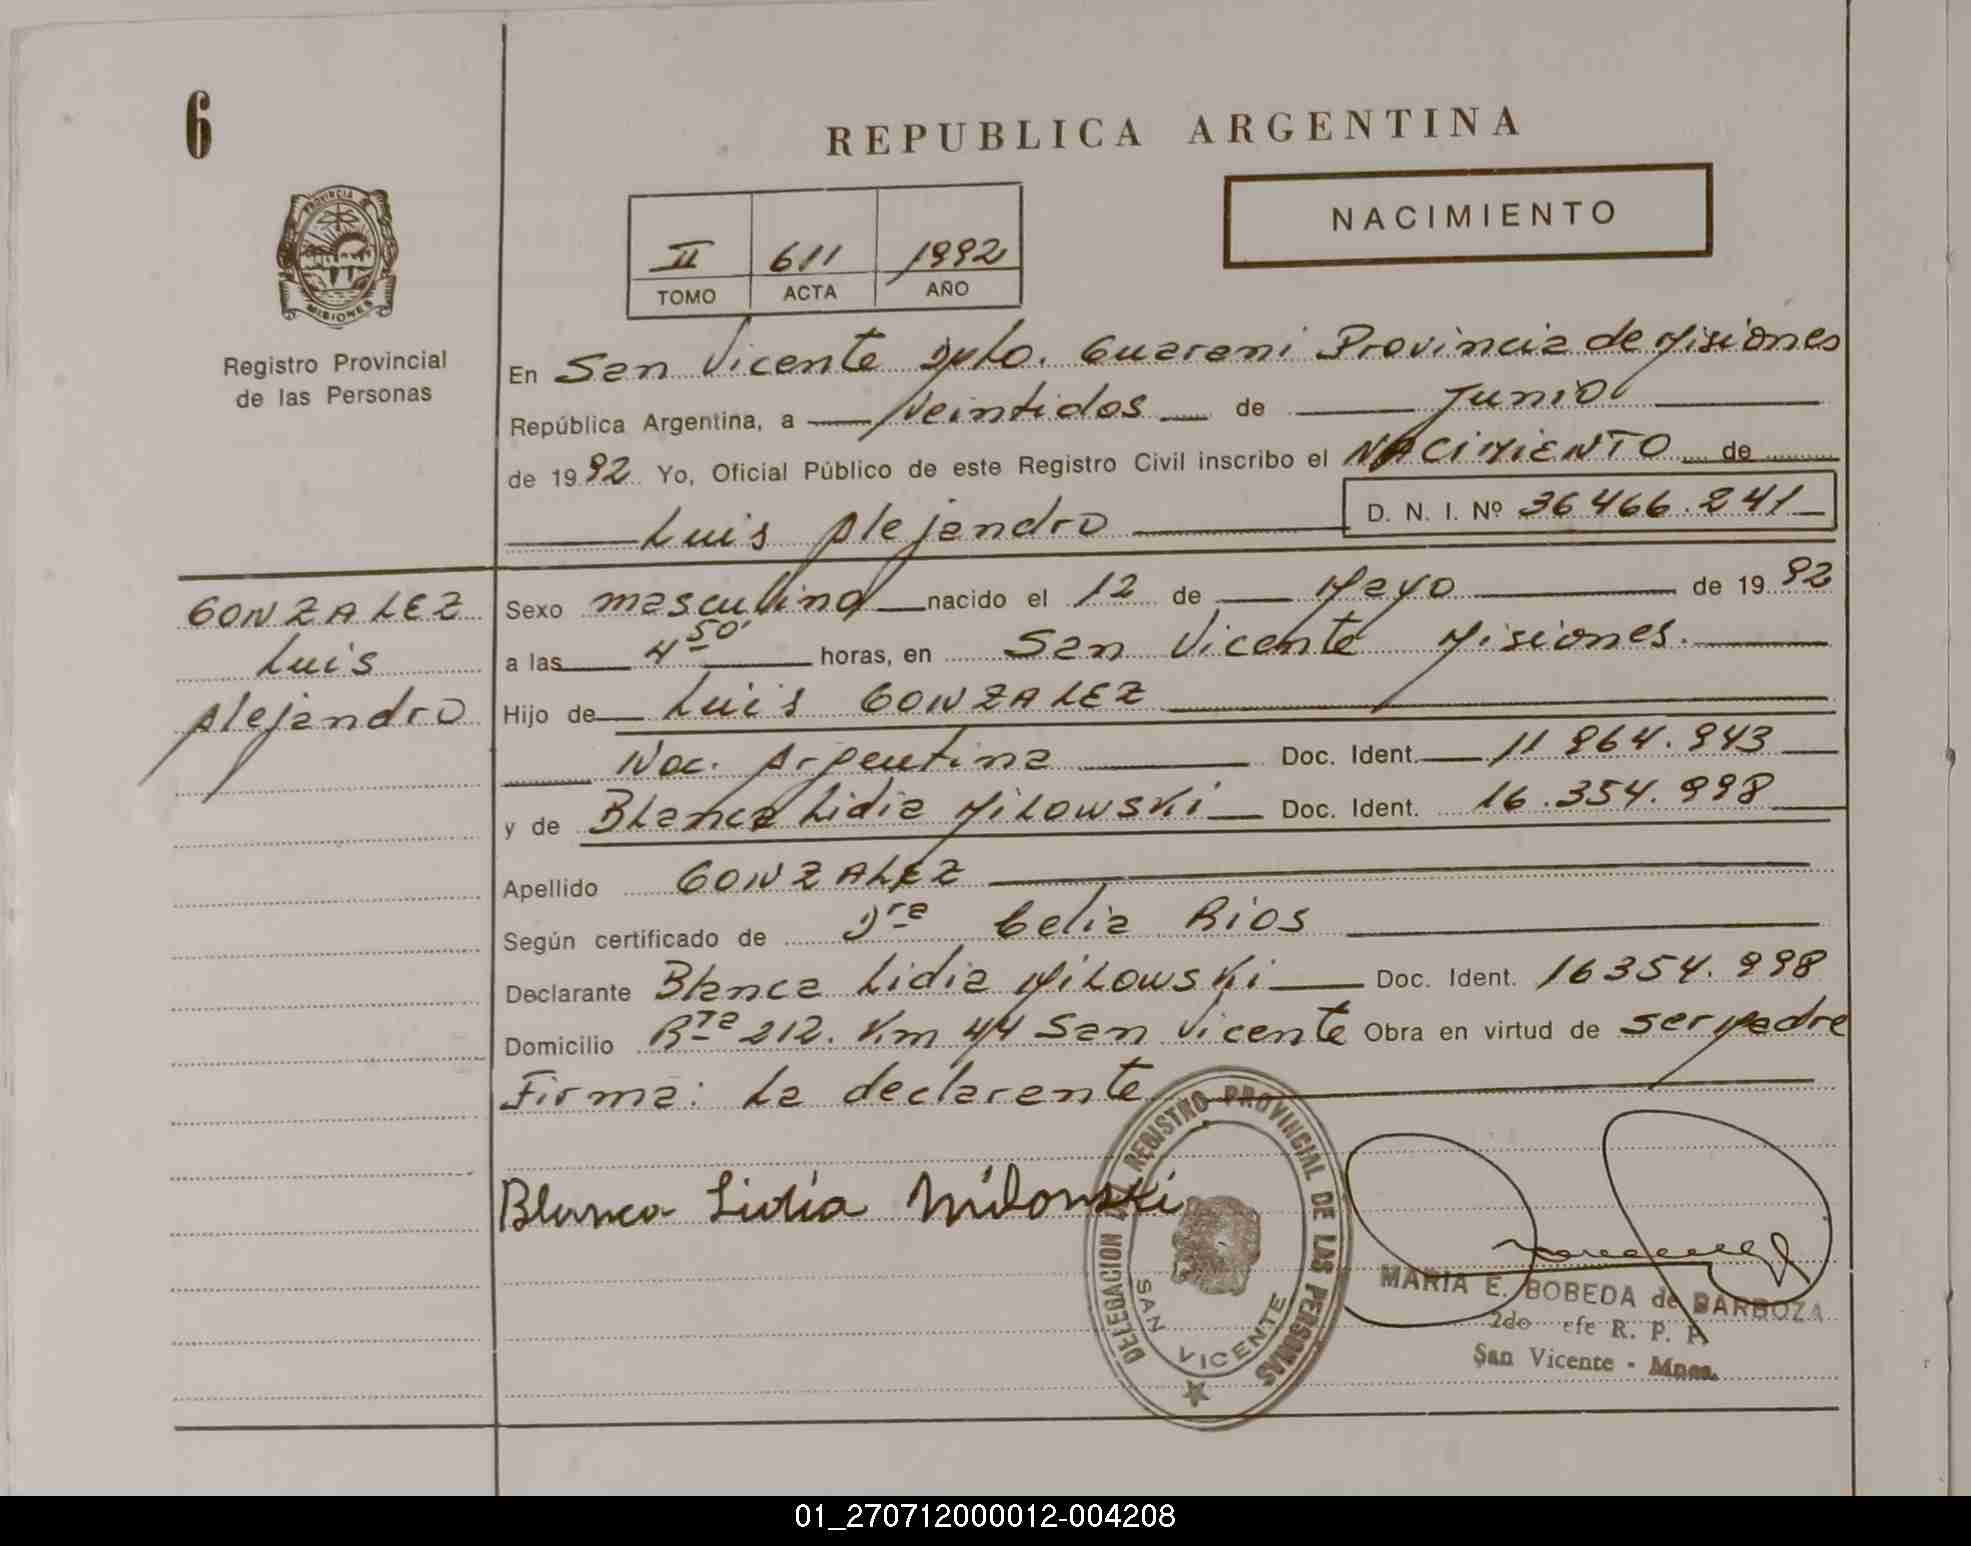 6
REPUBLICA ARGENTINA
NACIMIENTO
II 611 1992
TOMO ACTA AÑO
PROVINCIA
MISIONES
Registro Provincial
de las Personas
En San Vicente Dpto. Guarani Provincia de Misiones
República Argentina, a veintidos de Junio
de 1992 Yo, Oficial Público de este Registro Civil inscribo el NACIMIENTO de
Luis Alejandro D. N. I. Nº 36466.241
GONZALEZ
Luis
Alejandro
Sexo masculino nacido el 12 de Mayo de 1992
a las 4 50' horas, en San Vicente Misiones.
Hijo de Luis GONZALEZ
Nac. Argentina Doc. Ident. 11 964.943
y de Blanca Lidia MiLOWSKi Doc. Ident. 16.354.998
Apellido GONZALEZ
Según certificado de Dra Celia Rios
Declarante Blanca Lidia MiLOWSKi Doc. Ident. 16354.998
Domicilio Rta 212. Km 44 San Vicente Obra en virtud de ser madre
Firma: La declarante
Blanca Lidia Milowski
DELEGACION REGISTRO PROVINCIAL DE LAS PERSONAS
SAN VICENTE
MARIA E. BOBEDA de BARBOZA
2do efe R. P. P.
San Vicente - Mnes.
01_270712000012-004208